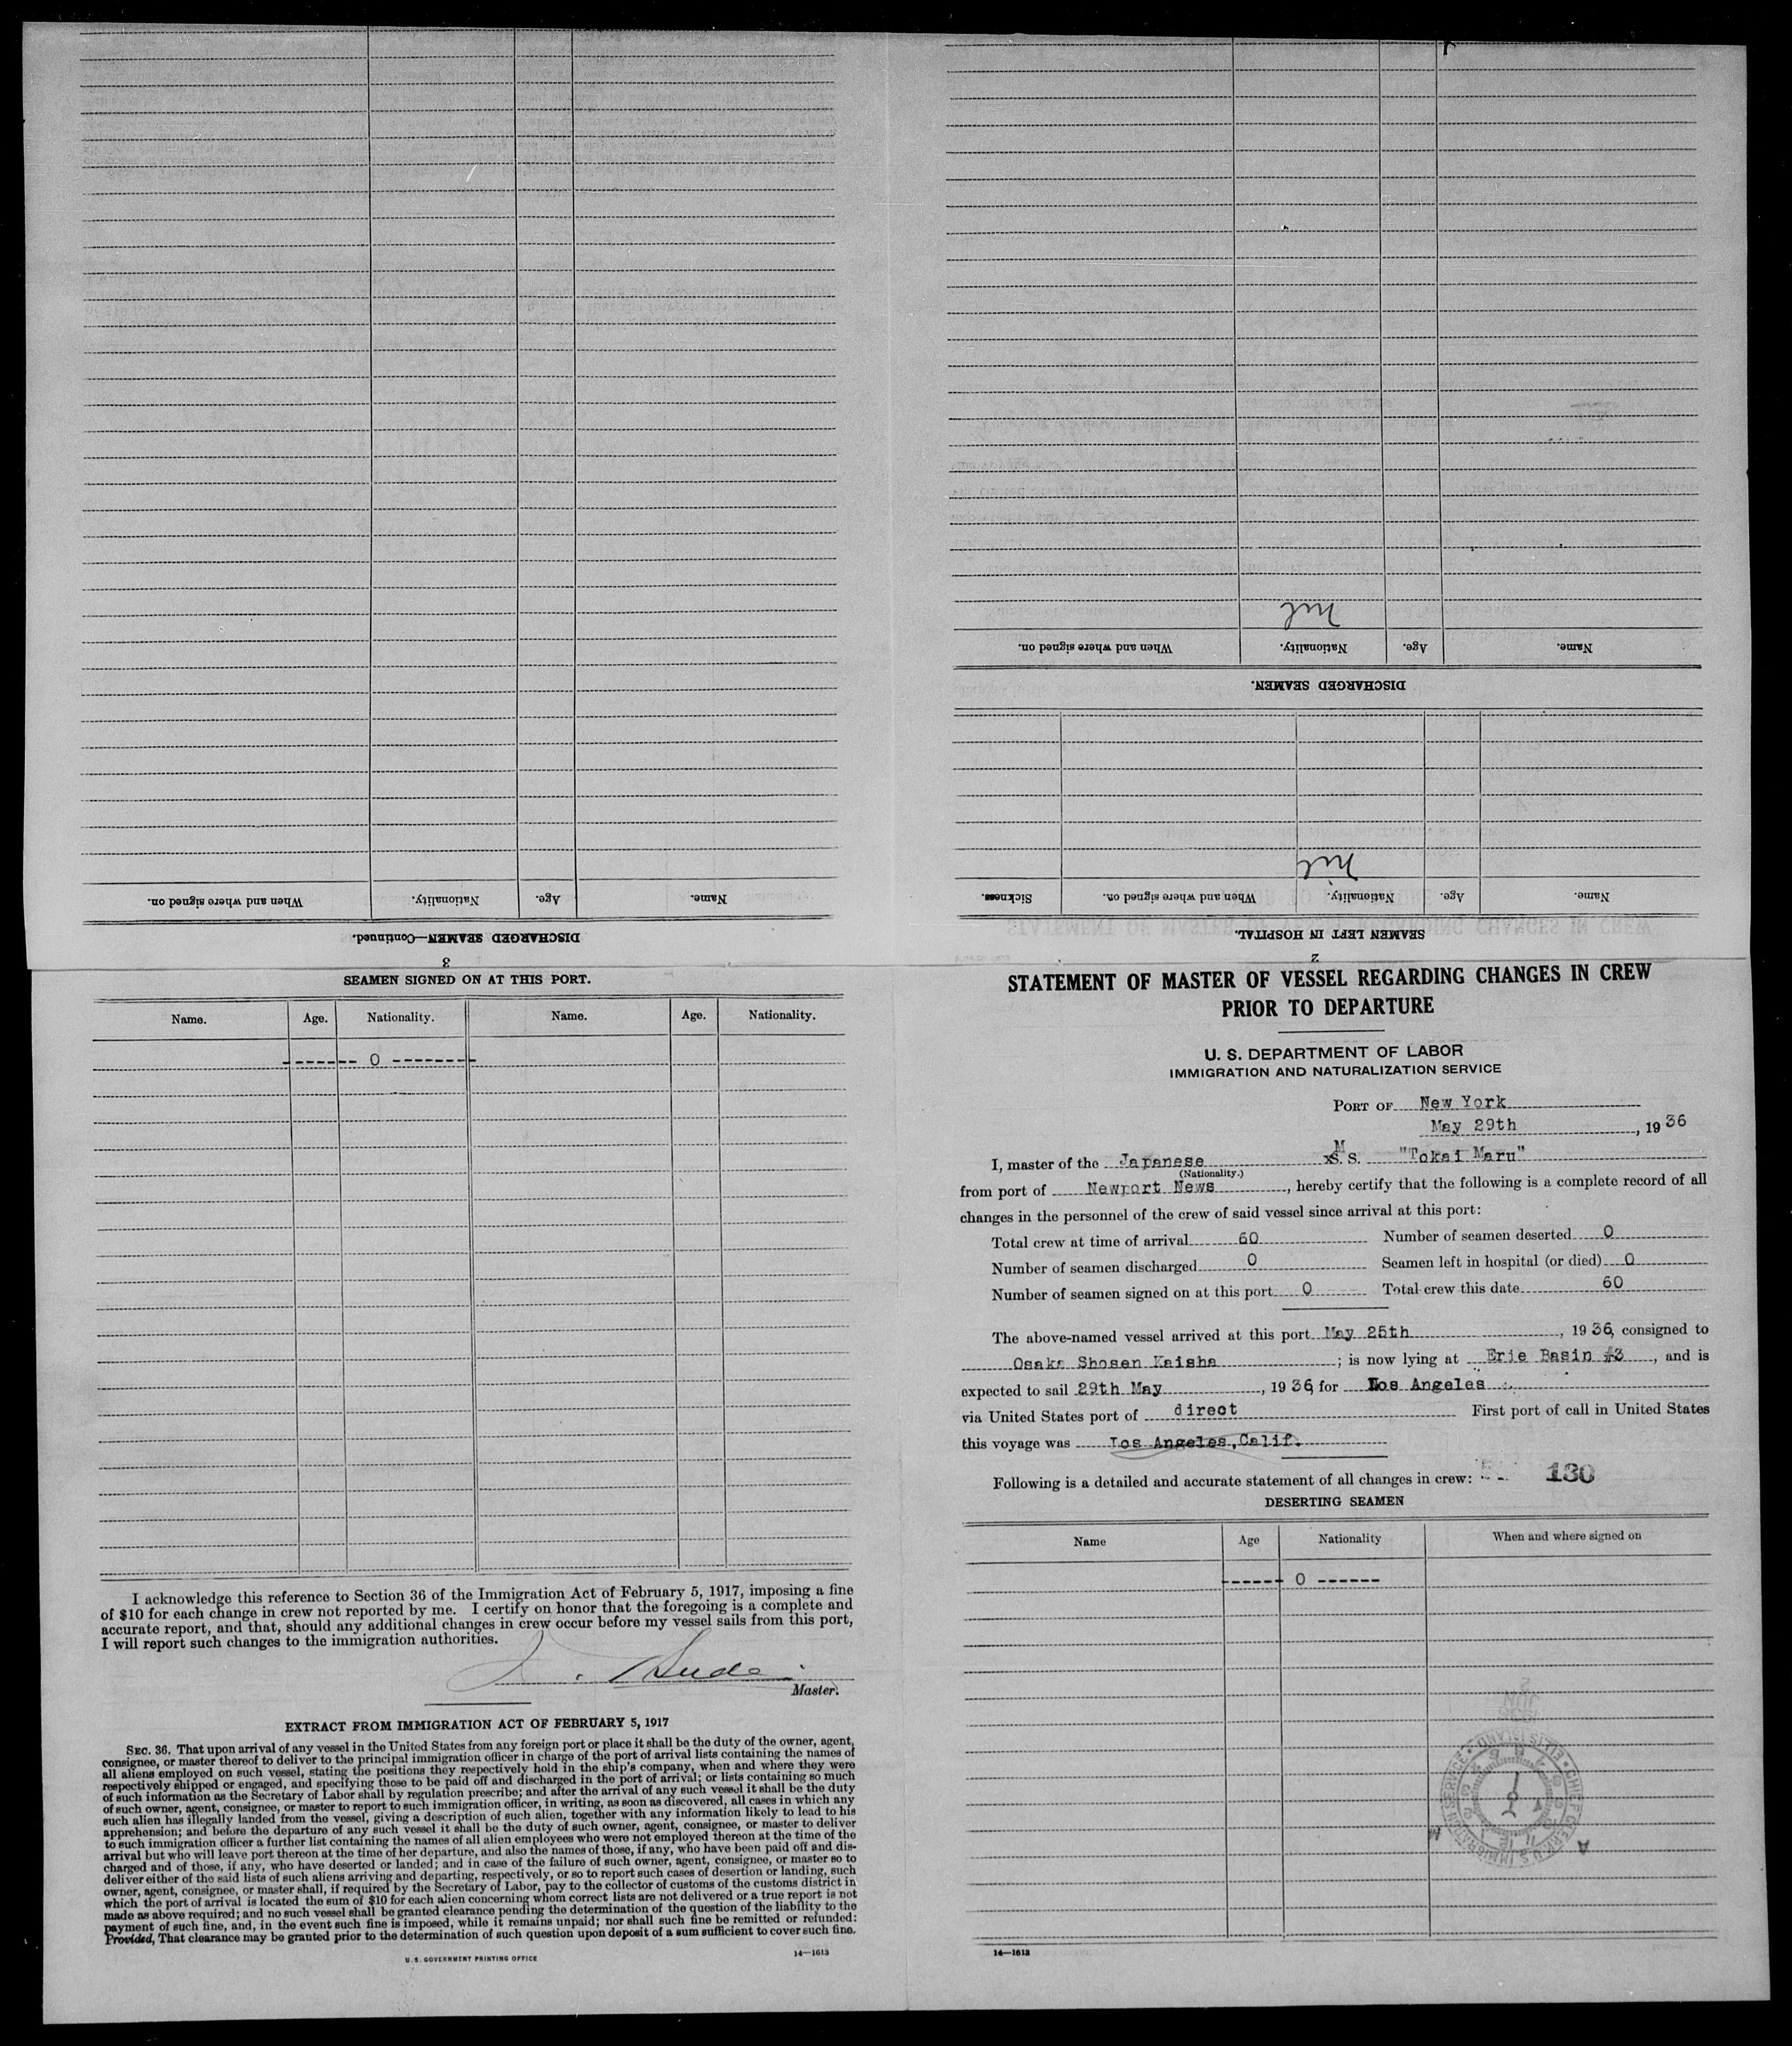 STATEMENT OF MASTER OF VESSEL REGARDING CHANGES IN CREW
PRIOR TO DEPARTURE
U. S. DEPARTMENT OF LABOR
IMMIGRATION AND NATURALIZATION SERVICE
PORT OF New York
May 29th, 1936
I, master of the Japanese M xS. S. "Tokai Maru"
(Nationality.)
from port of Newport News, hereby certify that the following is a complete record of all
changes in the personnel of the crew of said vessel since arrival at this port:
Total crew at time of arrival 60 Number of seamen deserted 0
Number of seamen discharged 0 Seamen left in hospital (or died) 0
Number of seamen signed on at this port 0 Total crew this date 60
The above-named vessel arrived at this port May 25th, 1936, consigned to
Osaka Shosen Kaisha; is now lying at Erie Basin #3, and is
expected to sail 29th May, 1936, for Los Angeles
via United States port of direct First port of call in United States
this voyage was Los Angeles, Calif.
Following is a detailed and accurate statement of all changes in crew: 130
DESERTING SEAMEN
Name Age Nationality When and where signed on
------ 0 ------
14—1613
2
SEAMEN LEFT IN HOSPITAL.
Name. Age. Nationality. When and where signed on. Sickness.
nil
DISCHARGED SEAMEN.
Name. Age. Nationality. When and where signed on.
nil
3
DISCHARGED SEAMEN—Continued.
Name. Age. Nationality. When and where signed on.
SEAMEN SIGNED ON AT THIS PORT.
Name. Age. Nationality. Name. Age. Nationality.
------- 0 --------
I acknowledge this reference to Section 36 of the Immigration Act of February 5, 1917, imposing a fine
of $10 for each change in crew not reported by me. I certify on honor that the foregoing is a complete and
accurate report, and that, should any additional changes in crew occur before my vessel sails from this port,
I will report such changes to the immigration authorities.
Master.
EXTRACT FROM IMMIGRATION ACT OF FEBRUARY 5, 1917
SEC. 36. That upon arrival of any vessel in the United States from any foreign port or place it shall be the duty of the owner, agent,
consignee, or master thereof to deliver to the principal immigration officer in charge of the port of arrival lists containing the names of
all aliens employed on such vessel, stating the positions they respectively hold in the ship's company, when and where they were
respectively shipped or engaged, and specifying those to be paid off and discharged in the port of arrival; or lists containing so much
of such information as the Secretary of Labor shall by regulation prescribe; and after the arrival of any such vessel it shall be the duty
of such owner, agent, consignee, or master to report to such immigration officer, in writing, as soon as discovered, all cases in which any
such alien has illegally landed from the vessel, giving a description of such alien, together with any information likely to lead to his
apprehension; and before the departure of any such vessel it shall be the duty of such owner, agent, consignee, or master to deliver
to such immigration officer a further list containing the names of all alien employees who were not employed thereon at the time of the
arrival but who will leave port thereon at the time of her departure, and also the names of those, if any, who have been paid off and dis-
charged and of those, if any, who have deserted or landed; and in case of the failure of such owner, agent, consignee, or master so to
deliver either of the said lists of such aliens arriving and departing, respectively, or so to report such cases of desertion or landing, such
owner, agent, consignee, or master shall, if required by the Secretary of Labor, pay to the collector of customs of the customs district in
which the port of arrival is located the sum of $10 for each alien concerning whom correct lists are not delivered or a true report is not
made as above required; and no such vessel shall be granted clearance pending the determination of the question of the liability to the
payment of such fine, and, in the event such fine is imposed, while it remains unpaid; nor shall such fine be remitted or refunded:
Provided, That clearance may be granted prior to the determination of such question upon deposit of a sum sufficient to cover such fine.
U. S. GOVERNMENT PRINTING OFFICE 14—1613